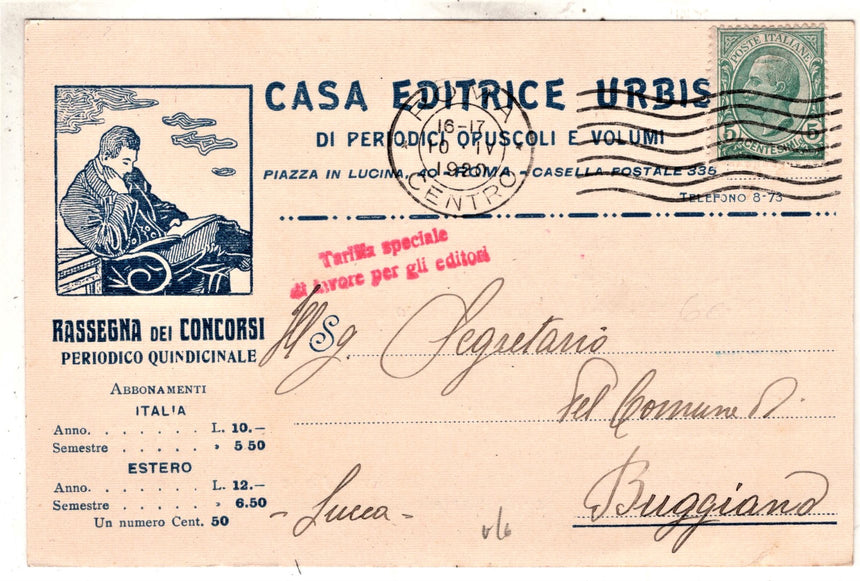 CASA EDITRICE URBIS
DI PERIODICI OPUSCOLI E VOLUMI
PIAZZA IN LUCINA, 40 - ROMA - CASELLA POSTALE 335
TELEFONO 8-73
POSTE ITALIANE
5 5
CENTESIMI
ROMA
16-17
10 IV
1920
CENTRO
Tariffa speciale
di favore per gli editori
RASSEGNA DEI CONCORSI
PERIODICO QUINDICINALE
ABBONAMENTI
ITALIA
Anno. . . . . . . L. 10.—
Semestre . . . . . » 5 50
ESTERO
Anno. . . . . . . L. 12.—
Semestre . . . . . » 6.50
Un numero Cent. 50
Ill Sg. Segretario
del Comune di
Buggiano
- Lucca -